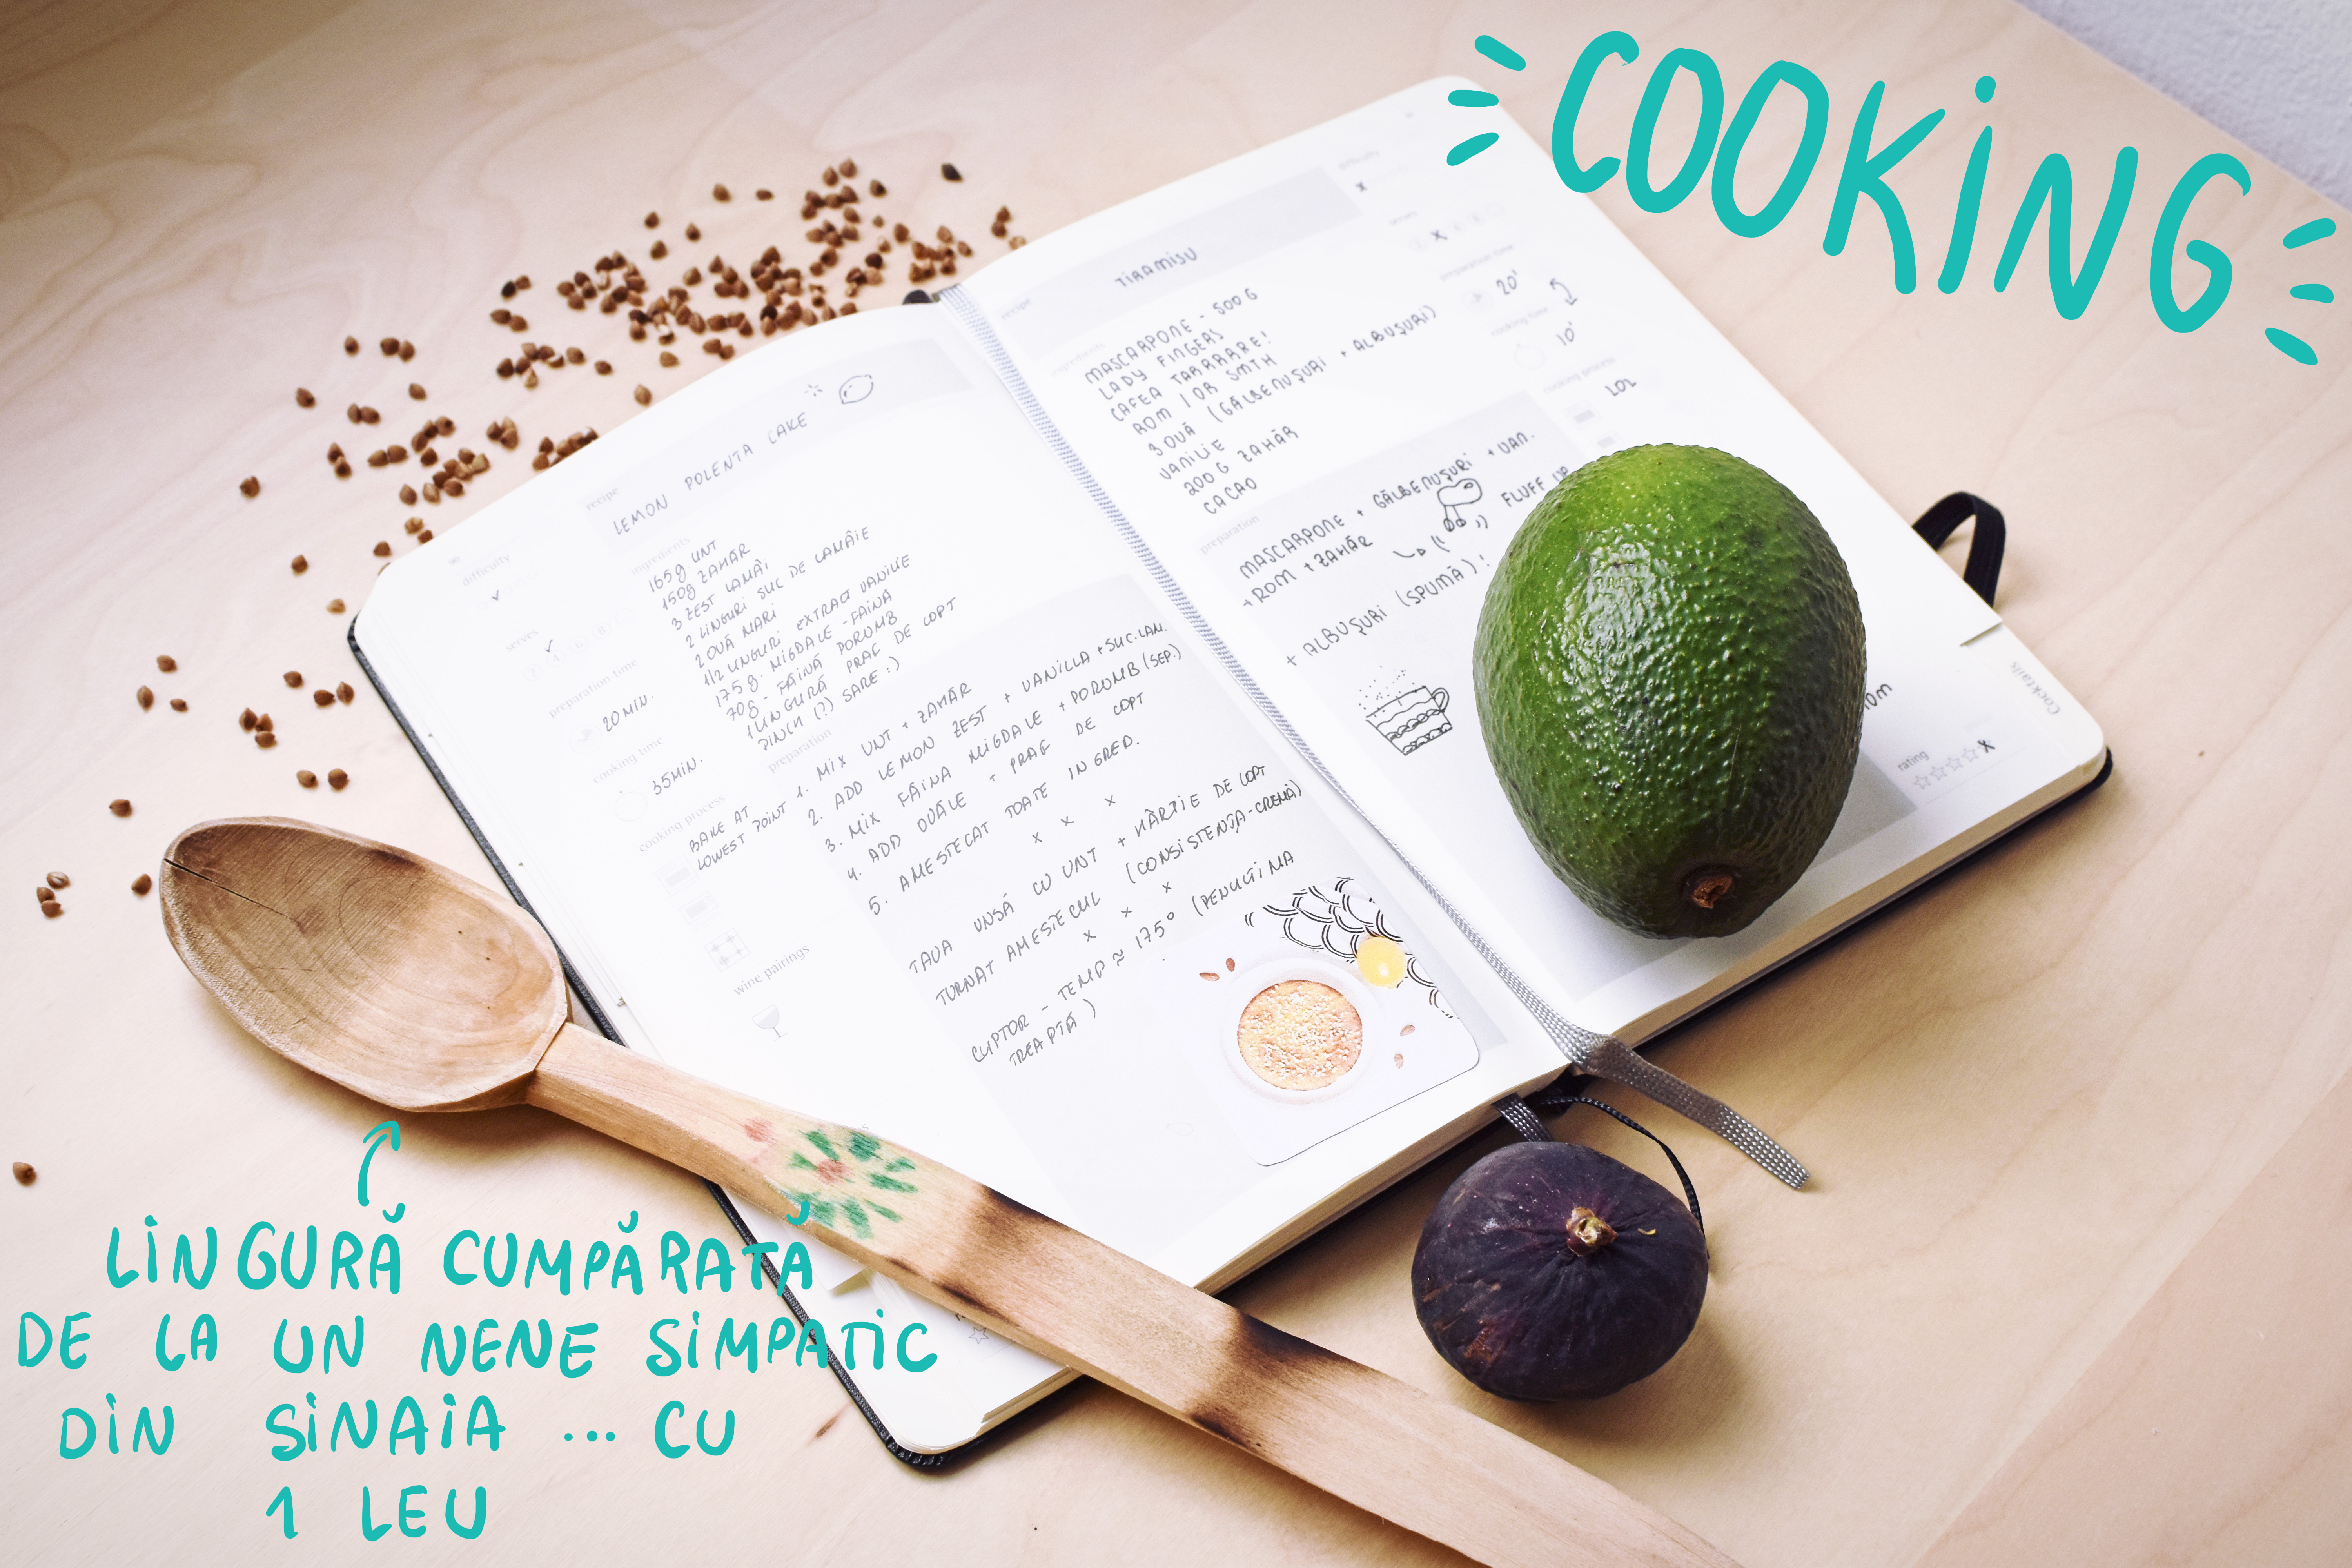 COOKING
recipe
LEMON POLENTA CAKE
difficulty
serves
preparation time
20 MIN.
cooking time
35 MIN.
cooking process
BAKE AT
LOWEST POINT
wine pairings
ingredients
165g UNT
150g ZAHĂR
3 ZEST LAMÂI
2 LINGURI SUC DE LAMÂIE
2 OUĂ MARI
1/2 LINGURI EXTRACT VANILIE
175g. MIGDALE - FAINA
70g - FĂINĂ PORUMB
1 LINGURĂ PRAF DE COPT
PINCH (?) SARE :)
preparation
1. MIX UNT + ZAHĂR
2. ADD LEMON ZEST + VANILLA + SUC.LAM.
3. MIX FĂINA MIGDALE + PORUMB (SEP.)
4. ADD OUĂLE + PRAF DE COPT
5. AMESTECAT TOATE INGRED.
x x x
TAVA UNSĂ CU UNT + HÂRTIE DE COPT
TURNAT AMESTECUL (CONSISTENȚA-CREMĂ)
x x x
CUPTOR - TEMP ≈ 175° (PENULTIMA
TREAPTĂ)
recipe
TIRAMISU
difficulty
x
serves
x
preparation time
20'
cooking time
10'
cooking process
LOL
ingredients
MASCARPONE - 500G
LADY FINGERS
CAFEA TARRRARE!
ROM / OR SMTH
3 OUĂ (GĂLBENUȘURI + ALBUȘURI)
VANILIE
200G ZAHĂR
CACAO
preparation
MASCARPONE + GĂLBENUȘURI + VAN.
+ ROM + ZAHĂR FLUFF UP
+ ALBUȘURI (SPUMĂ)!
rating
x
Cocktails
LINGURĂ CUMPĂRATĂ
DE LA UN NENE SIMPATIC
DIN SINAIA ... CU
1 LEU